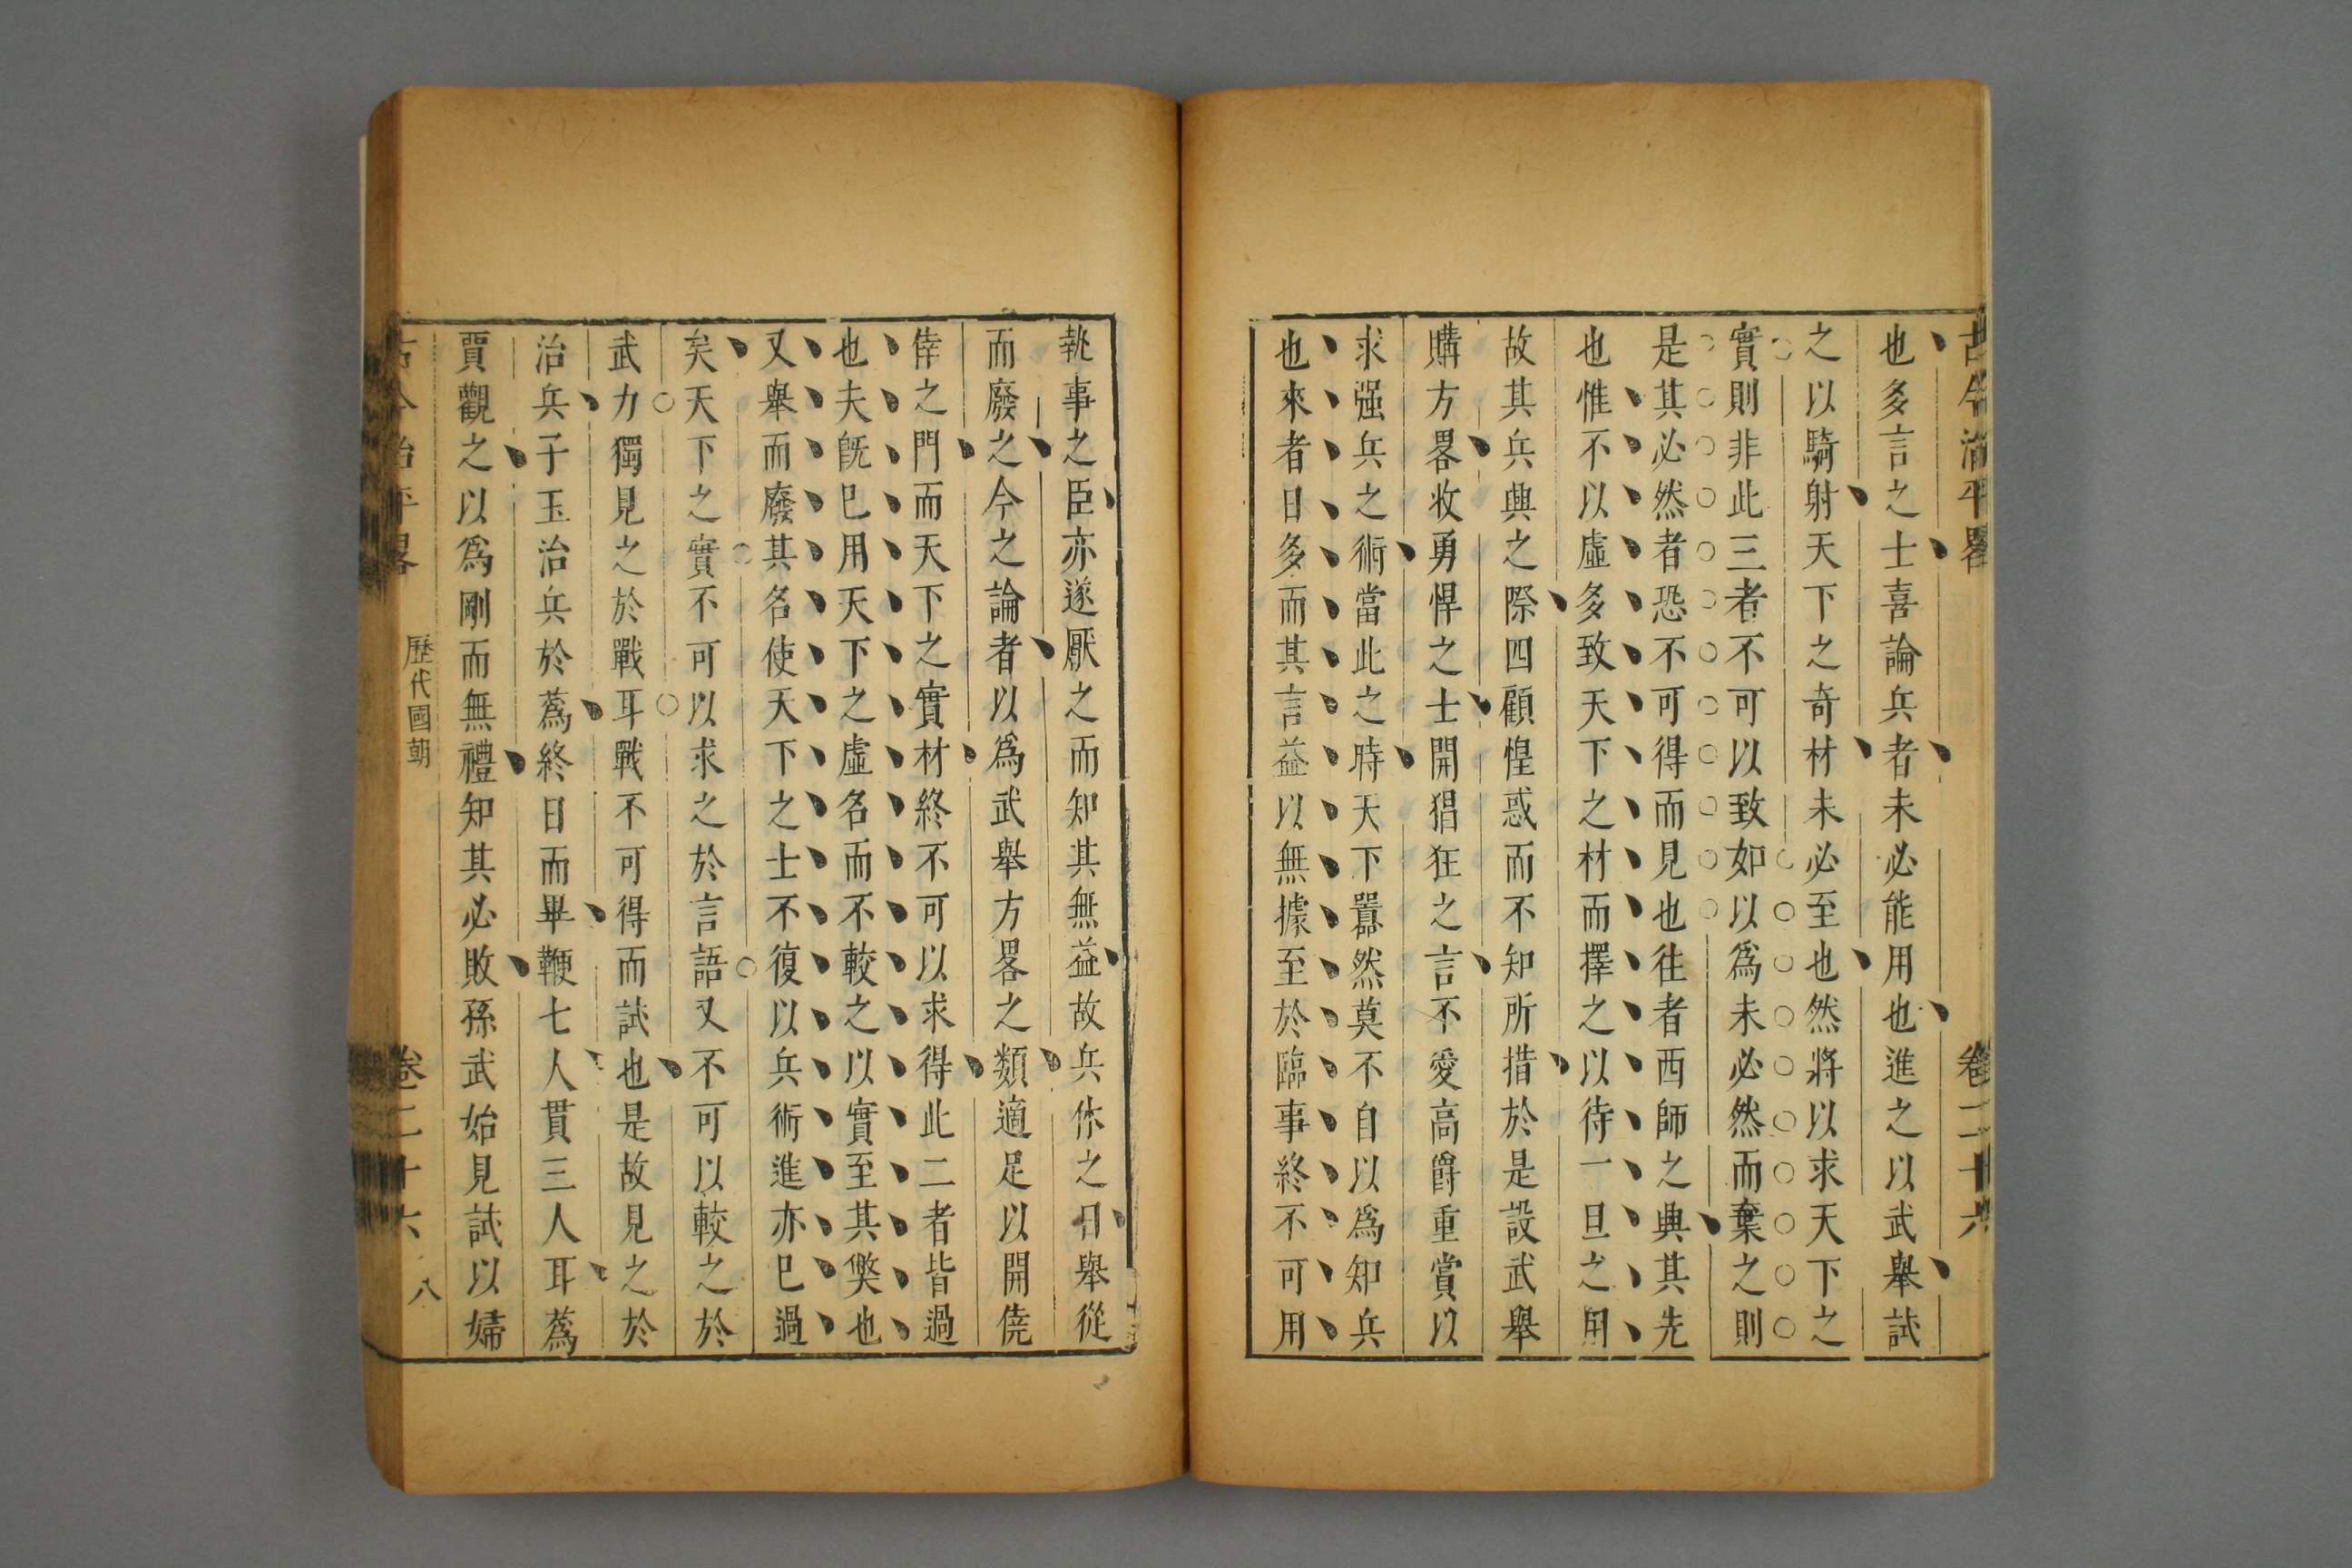 古今治平畧 卷二十六
也多言之士喜論兵者未必能用也進之以武舉試
之以騎射天下之奇材未必至也然將以求天下之
實則非此三者不可以致如以爲未必然而棄之則
是其必然者恐不可得而見也往者西師之興其先
也惟不以虛多致天下之材而擇之以待一旦之用
故其兵興之際四顧惶惑而不知所措於是設武舉
購方畧收勇悍之士開猖狂之言不愛高爵重賞以
求强兵之術當此之時天下囂然莫不自以爲知兵
也來者日多而其言益以無據至於臨事終不可用
執事之臣亦遂厭之而知其無益故兵休之日舉從
而廢之今之論者以爲武舉方畧之類適足以開僥
倖之門而天下之實材終不可以求得此二者皆過
也夫旣已用天下之虛名而不較之以實至其獘也
又舉而廢其名使天下之士不復以兵術進亦已過
矣天下之實不可以求之於言語又不可以較之於
武力獨見之於戰耳戰不可得而試也是故見之於
治兵子玉治兵於蔿終日而畢鞭七人貫三人耳蔿
賈觀之以爲剛而無禮知其必敗孫武始見試以婦
古今治平畧 歷代國朝 卷二十六 八